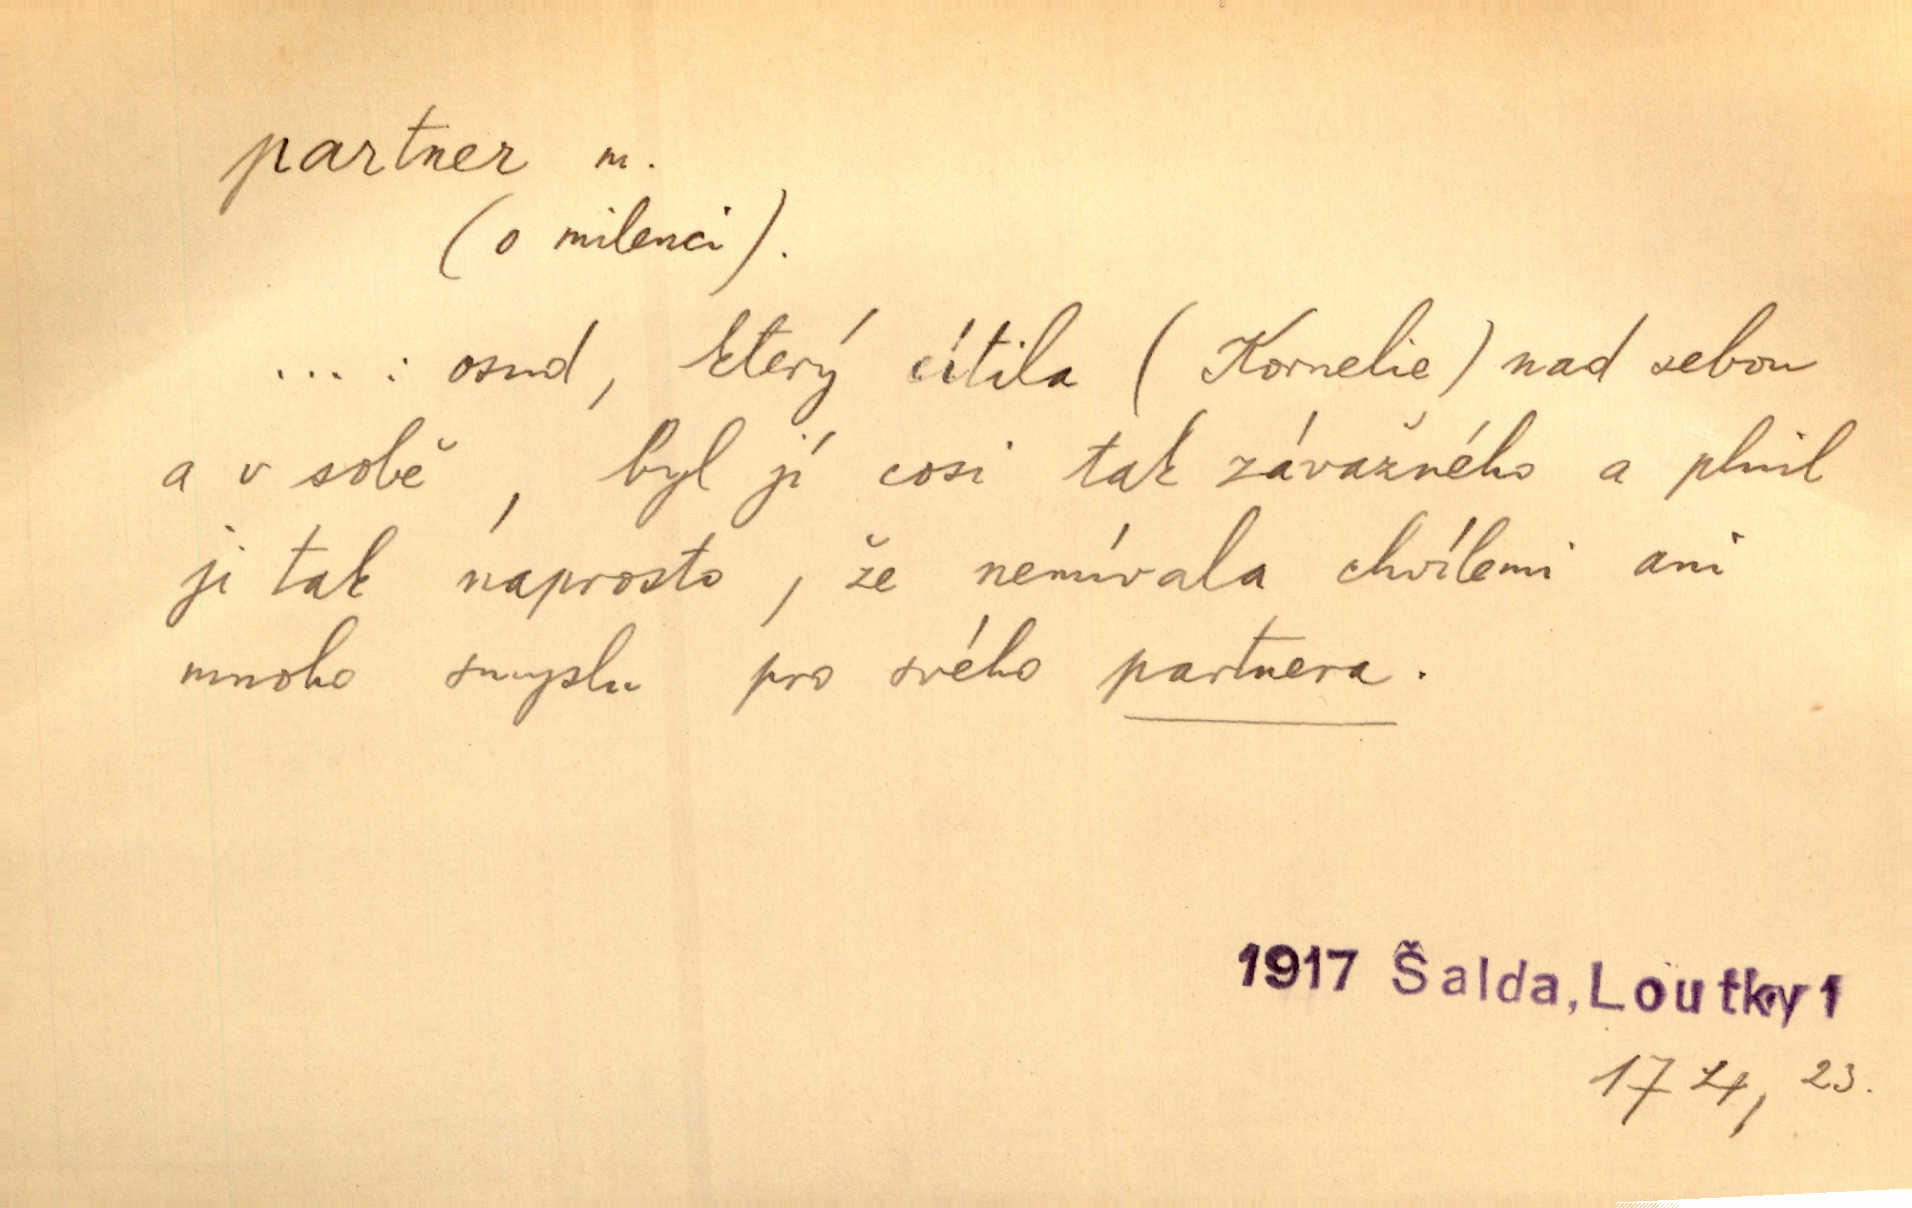 partner m.
(o milenci).
... : osud, který cítila (Kornelie) nad sebou
a v sobě, byl jí cosi tak závažného a plnil
ji tak naprosto, že nemívala chvílemi ani
mnoho smyslu pro svého partnera.
1917 Šalda, Loutky 1
174, 23.